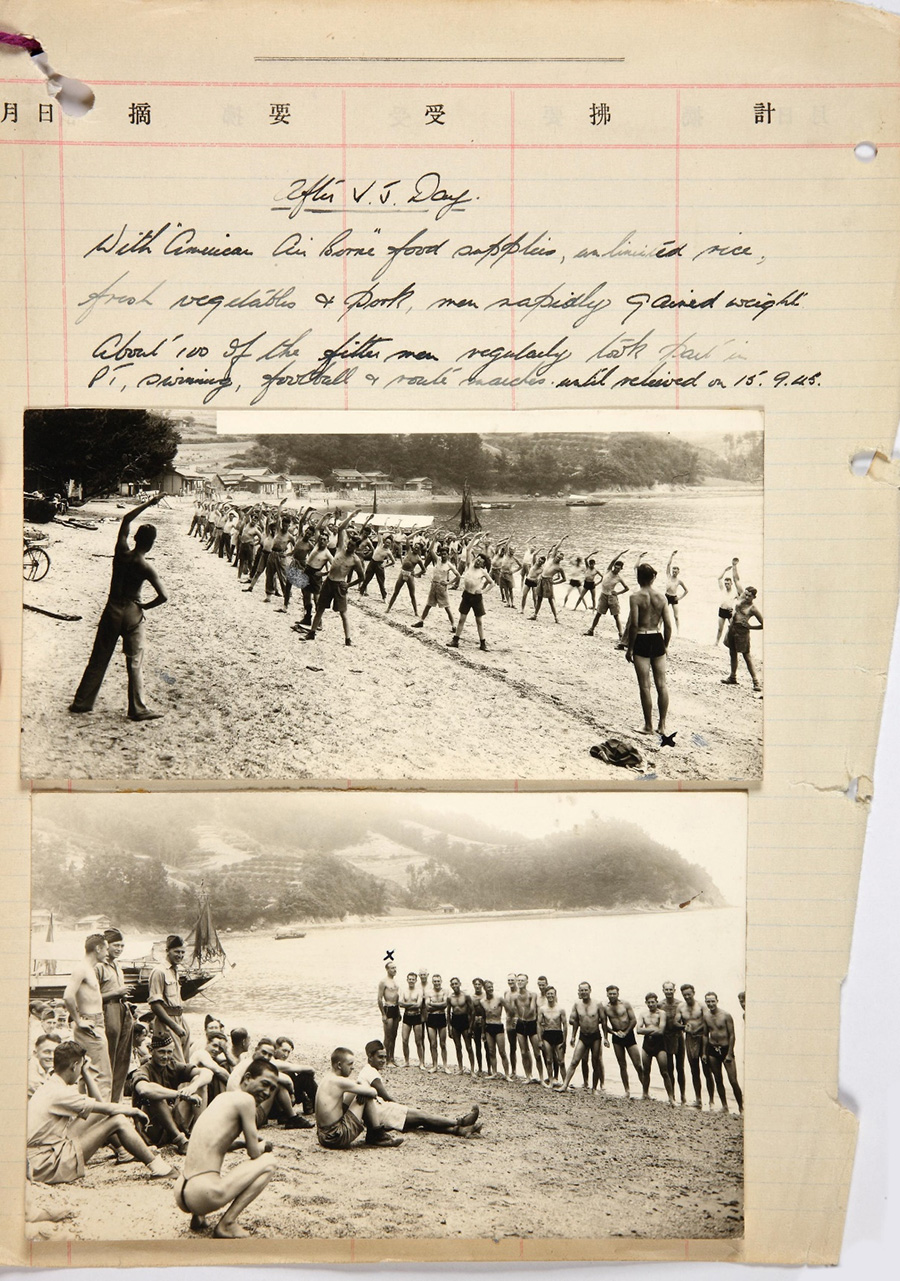 月 日 摘 要 受 拂 計
After V.J. Day.
With "American Air Borne" food supplies, unlimited rice,
fresh vegetables & pork, men rapidly gained weight
About 100 of the fitter men regularly took part in
P.T., swimming, football & route marches. until relieved on 15.9.45.
X
X